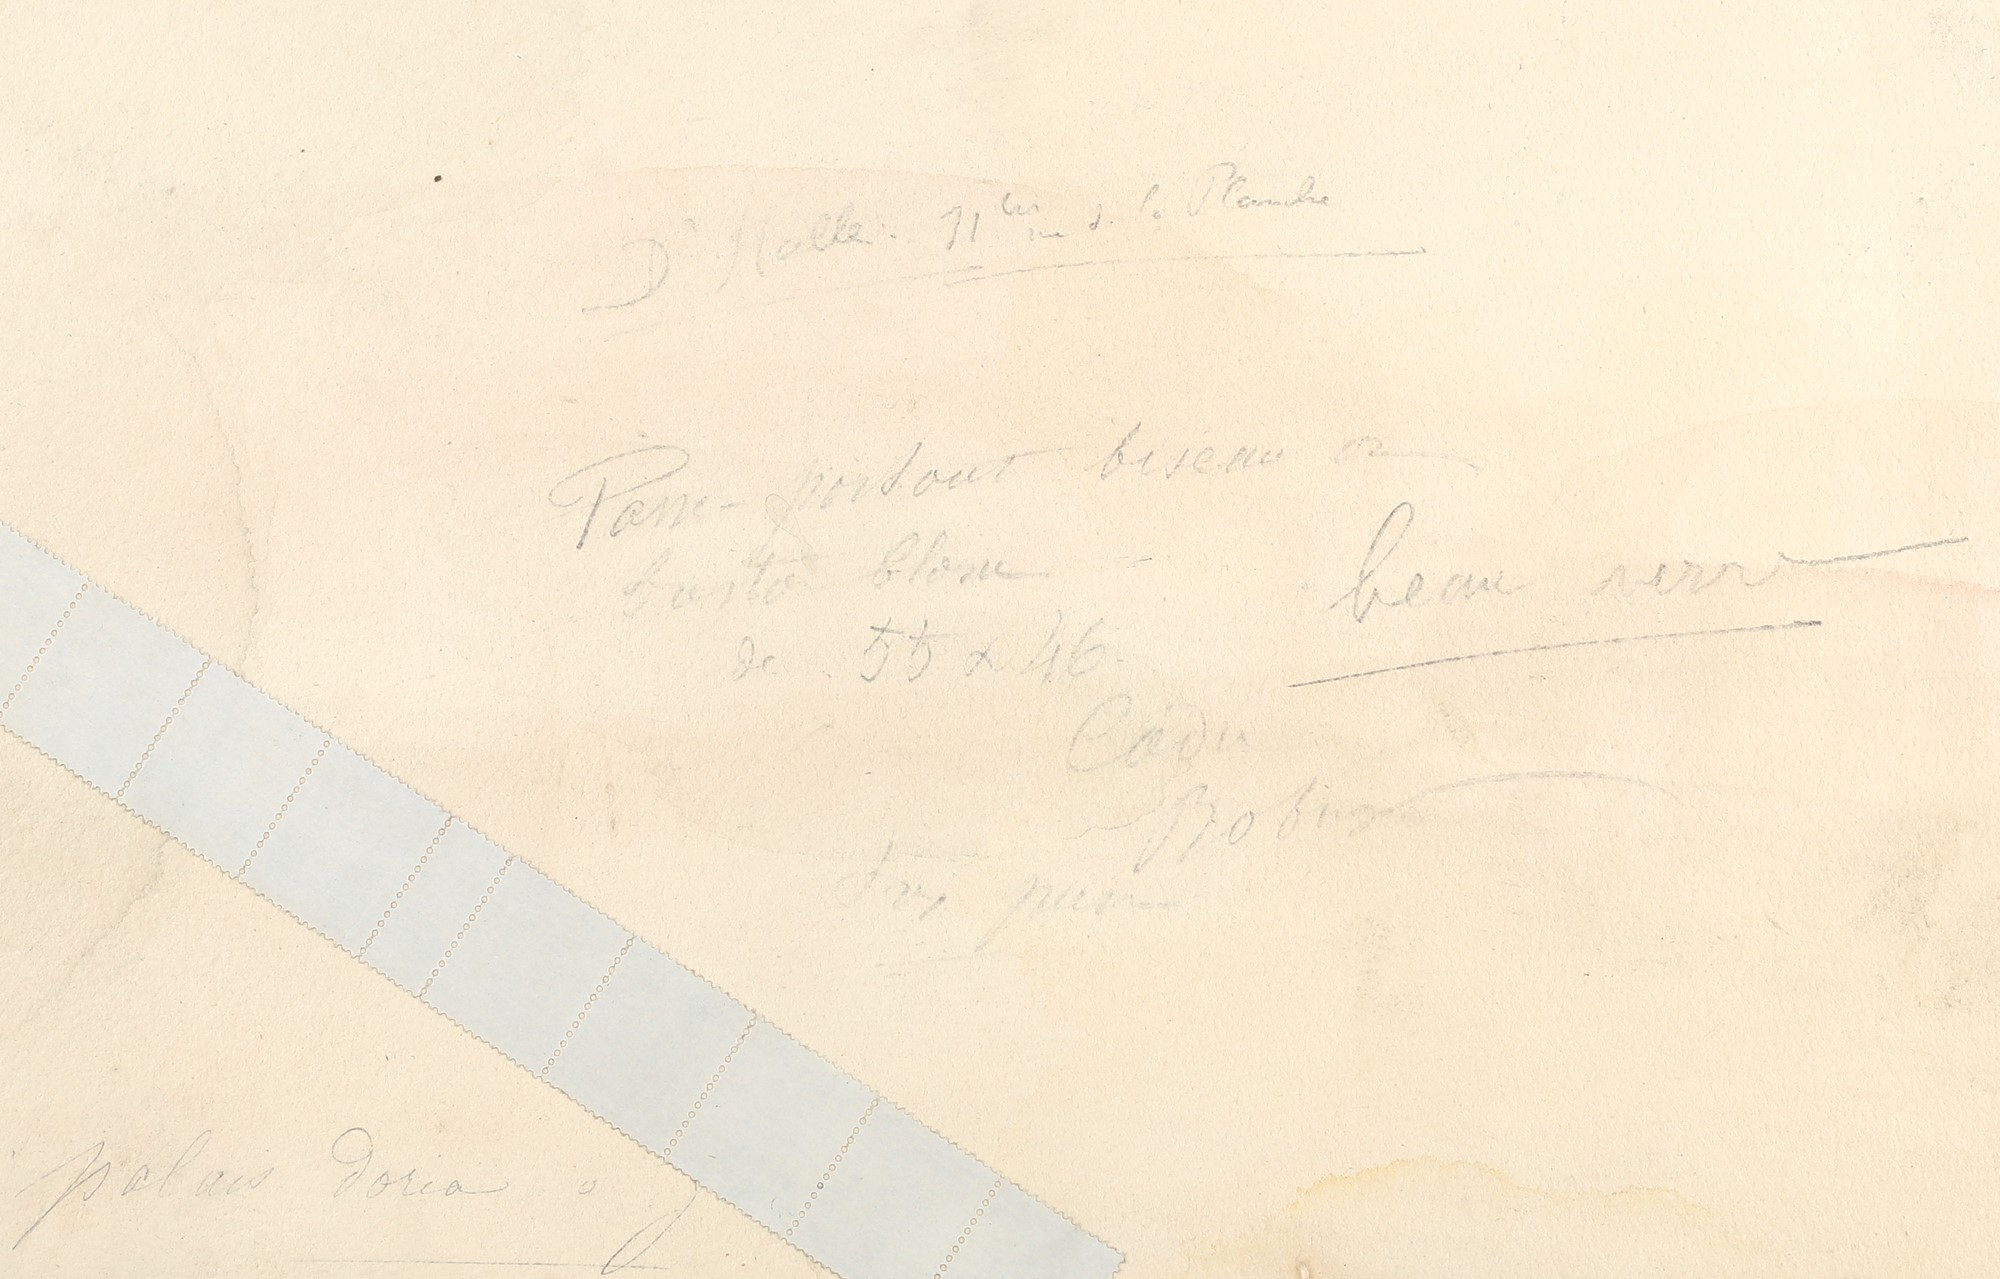 Dr Hallé. 11 bis rue de la Planche
Passe-partout biseau or
bristol blanc
beau verre
de 55 x 46
Cadre
palais doria a